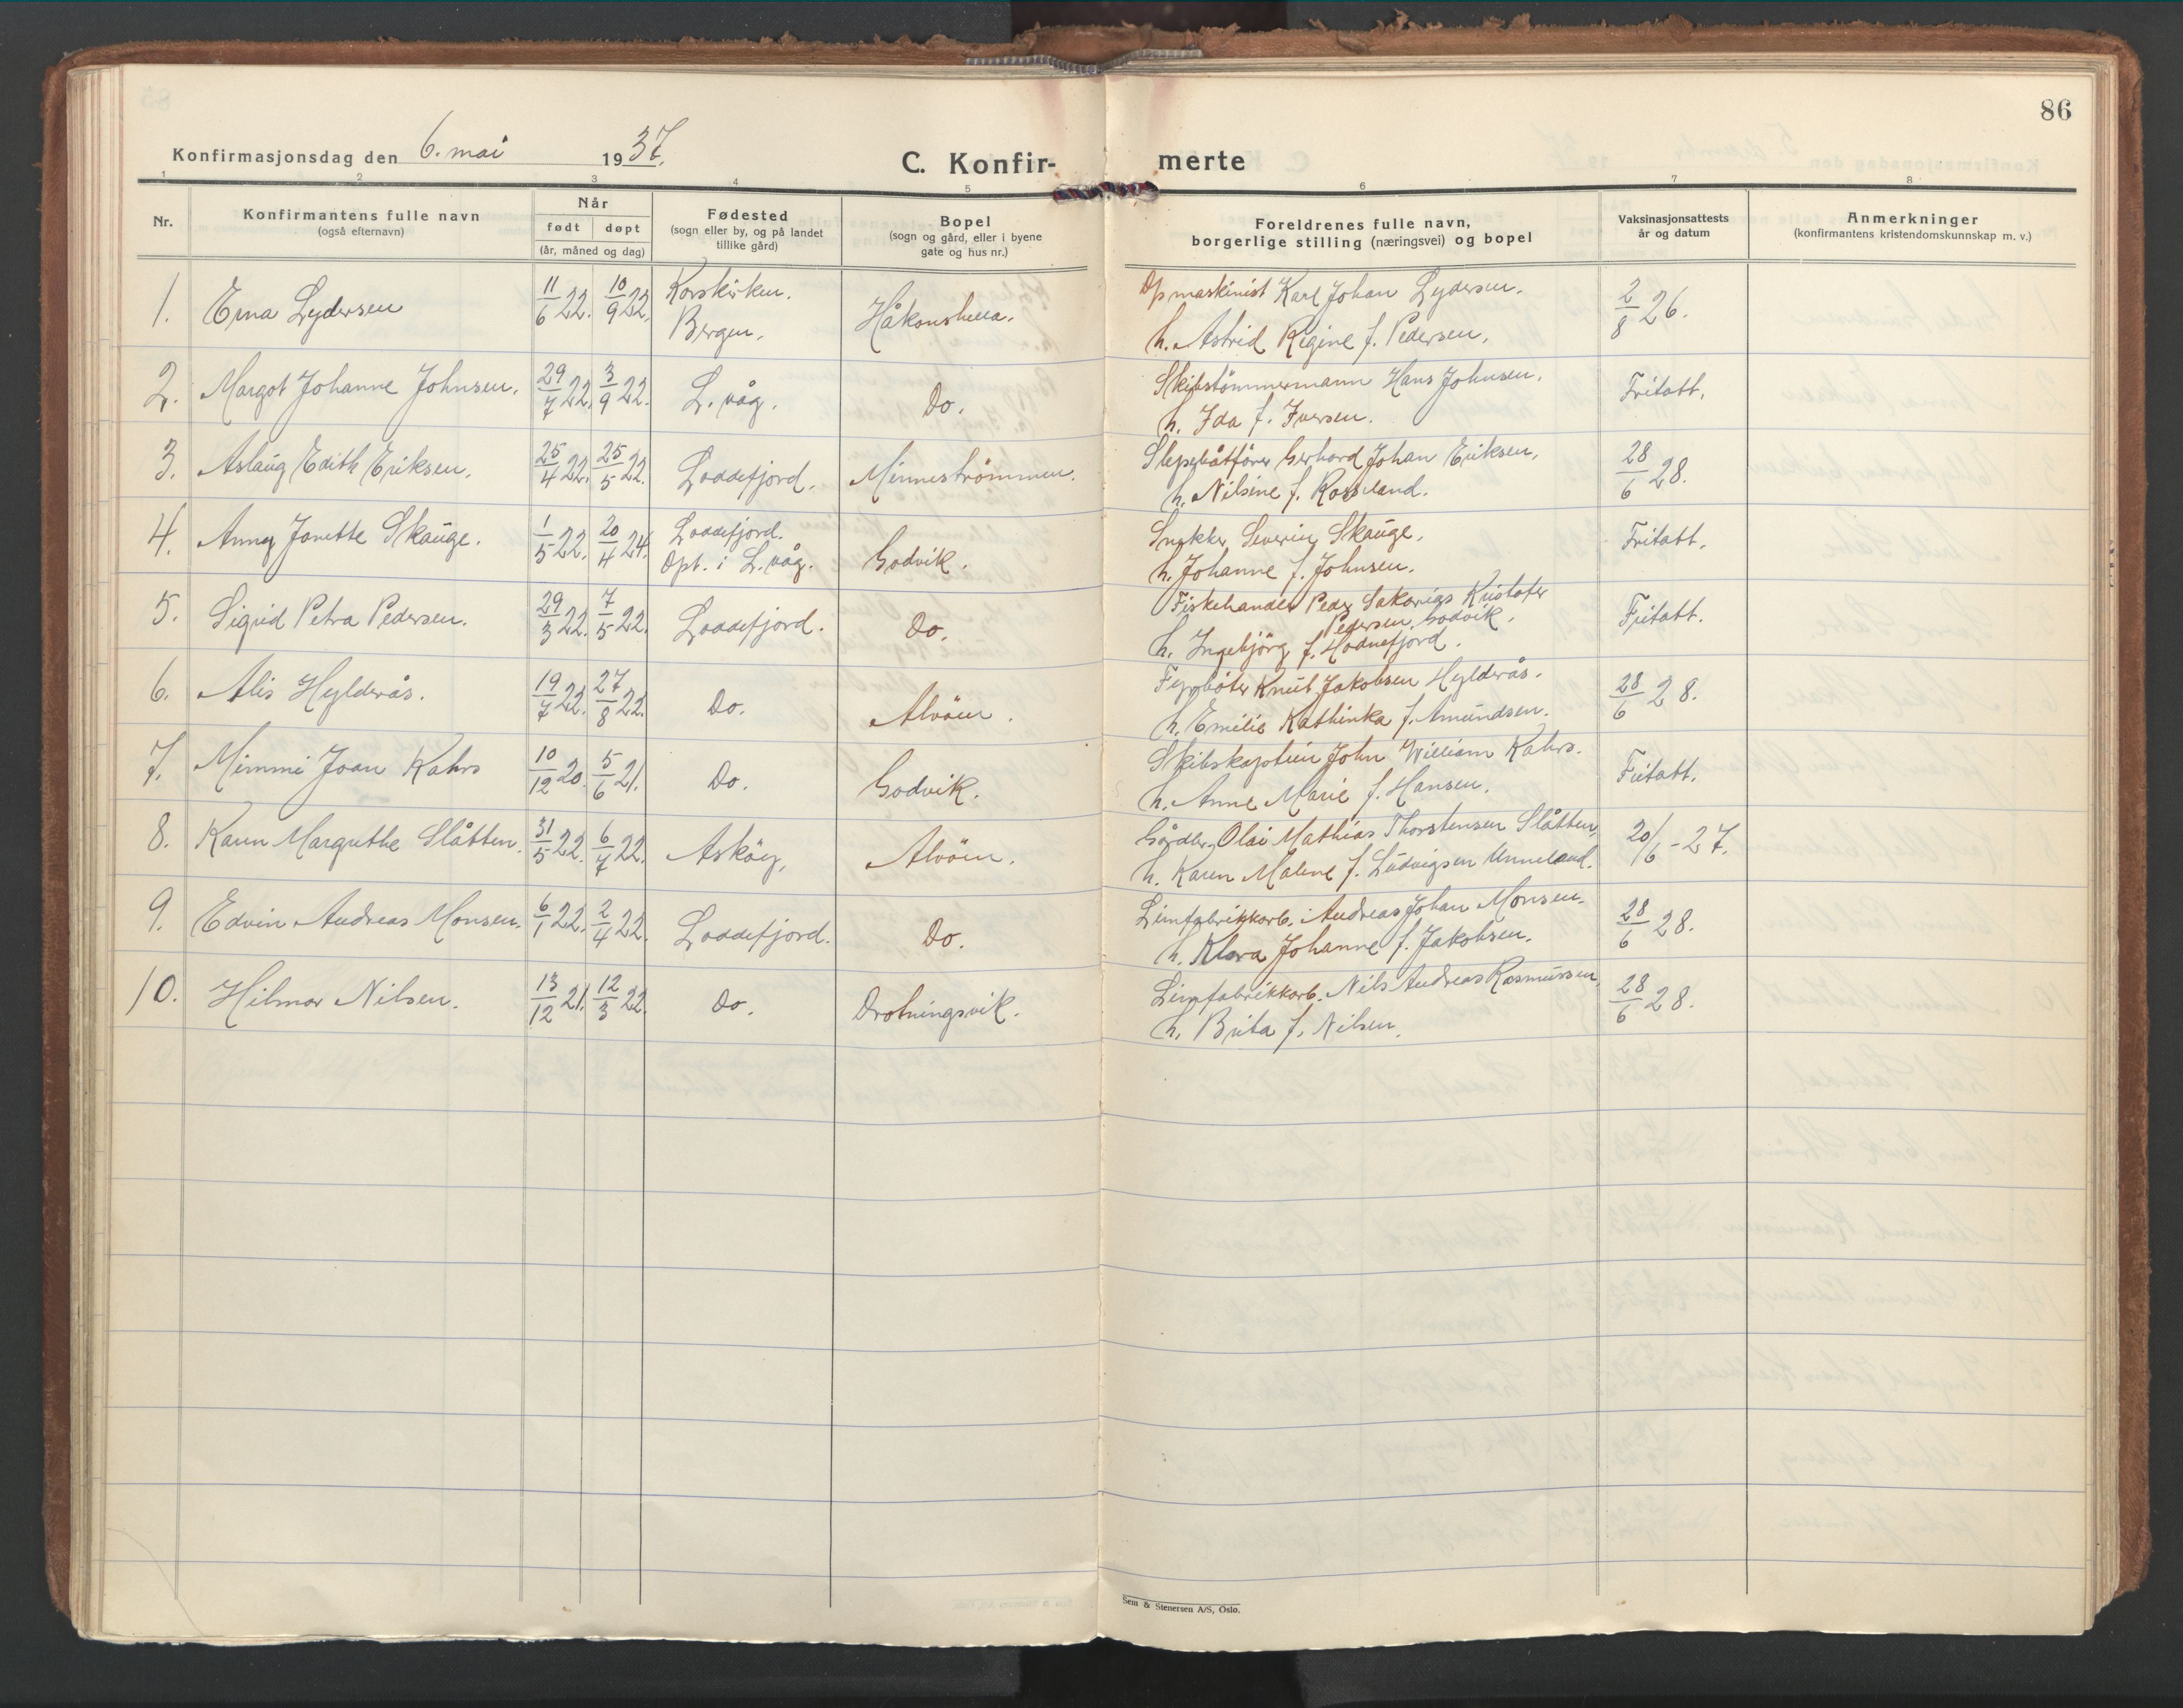 86
Konfirmasjonsdag den 6. mai 1937.
C. Konfir- merte
1 2 3 4 5 6 7 8
Nr.
Konfirmantens fulle navn
(også efternavn)
Når
født døpt
(år, måned og dag)
Fødested
(sogn eller by, og på landet
tillike gård)
Bopel
(sogn og gård, eller i byene
gate og hus nr.)
Foreldrenes fulle navn,
borgerlige stilling (næringsvei) og bopel
Vaksinasjonsattests
år og datum
Anmerkninger
(konfirmantens kristendomskunnskap m. v.)
1. Erna Lydersen 11/6 22. 10/9 22. Korskirken. Bergen. Håkonshella. Dpmaskinist Karl Johan Lydersen. 2/8 26.
h. Astrid Regine f. Pedersen.
2. Margot Johanne Johnsen. 29/7 22. 3/9 22. L. våg. Do. Skibstömmermann Hans Johnsen. Fritatt.
h. Ida f. Iversen.
3. Aslaug Edith Eriksen. 25/4 22. 25/5 22. Loddefjord. Minneströmmen. Slepebåtförer Gerhard Johan Eriksen. 28/6 28.
h. Nilsine f. Rossland.
4. Anny Janette Skauge. 1/5 22. 20/4 24. Loddefjord. Dpt. i L. våg. Godvik. Snekker Severin Skauge. Fritatt.
h. Johanne f. Johnsen.
5. Sigrid Petra Pedersen. 29/3 22. 7/5 22. Loddefjord. Do. Fiskehandler Peder Sakarias Kristofer Fritatt.
Pedersen, Godvik.
h. Ingebjörg f. Hodnefjord.
6. Alis Hylderås. 19/7 22. 27/8 22. Do. Alvöen. Knut Jakobsen Hylderås. 28/6 28.
h. Emilie Kathinka f. Amundsen.
7. Mimmi Joan Kahrs 10/12 20. 5/6 21. Do. Godvik. Skibskaptein John William Kahrs. Fritatt.
h. Anne Marie f. Hansen.
8. Karen Margrethe Slåtten. 31/5 22. 6/7 22. Asköy. Alvöen. Olai Mathias Thorstensen Slåtten, 20/6-27.
h. Karen Malene f. Ludvigsen Unneland.
9. Edvin Andreas Monsen. 6/1 22. 2/4 22. Loddefjord. Do. Limfabrikkarb. Andreas Johan Monsen. 28/6 28.
h. Klara Johanne f. Jakobsen.
10. Hilmar Nilsen. 13/12 21. 12/3 22. Do. Drotningsvik. Limfabrikkarb. Nils Andreas Rasmussen, 28/6 28.
h. Brita f. Nilsen.
Sem & Stenersen A/S, Oslo.